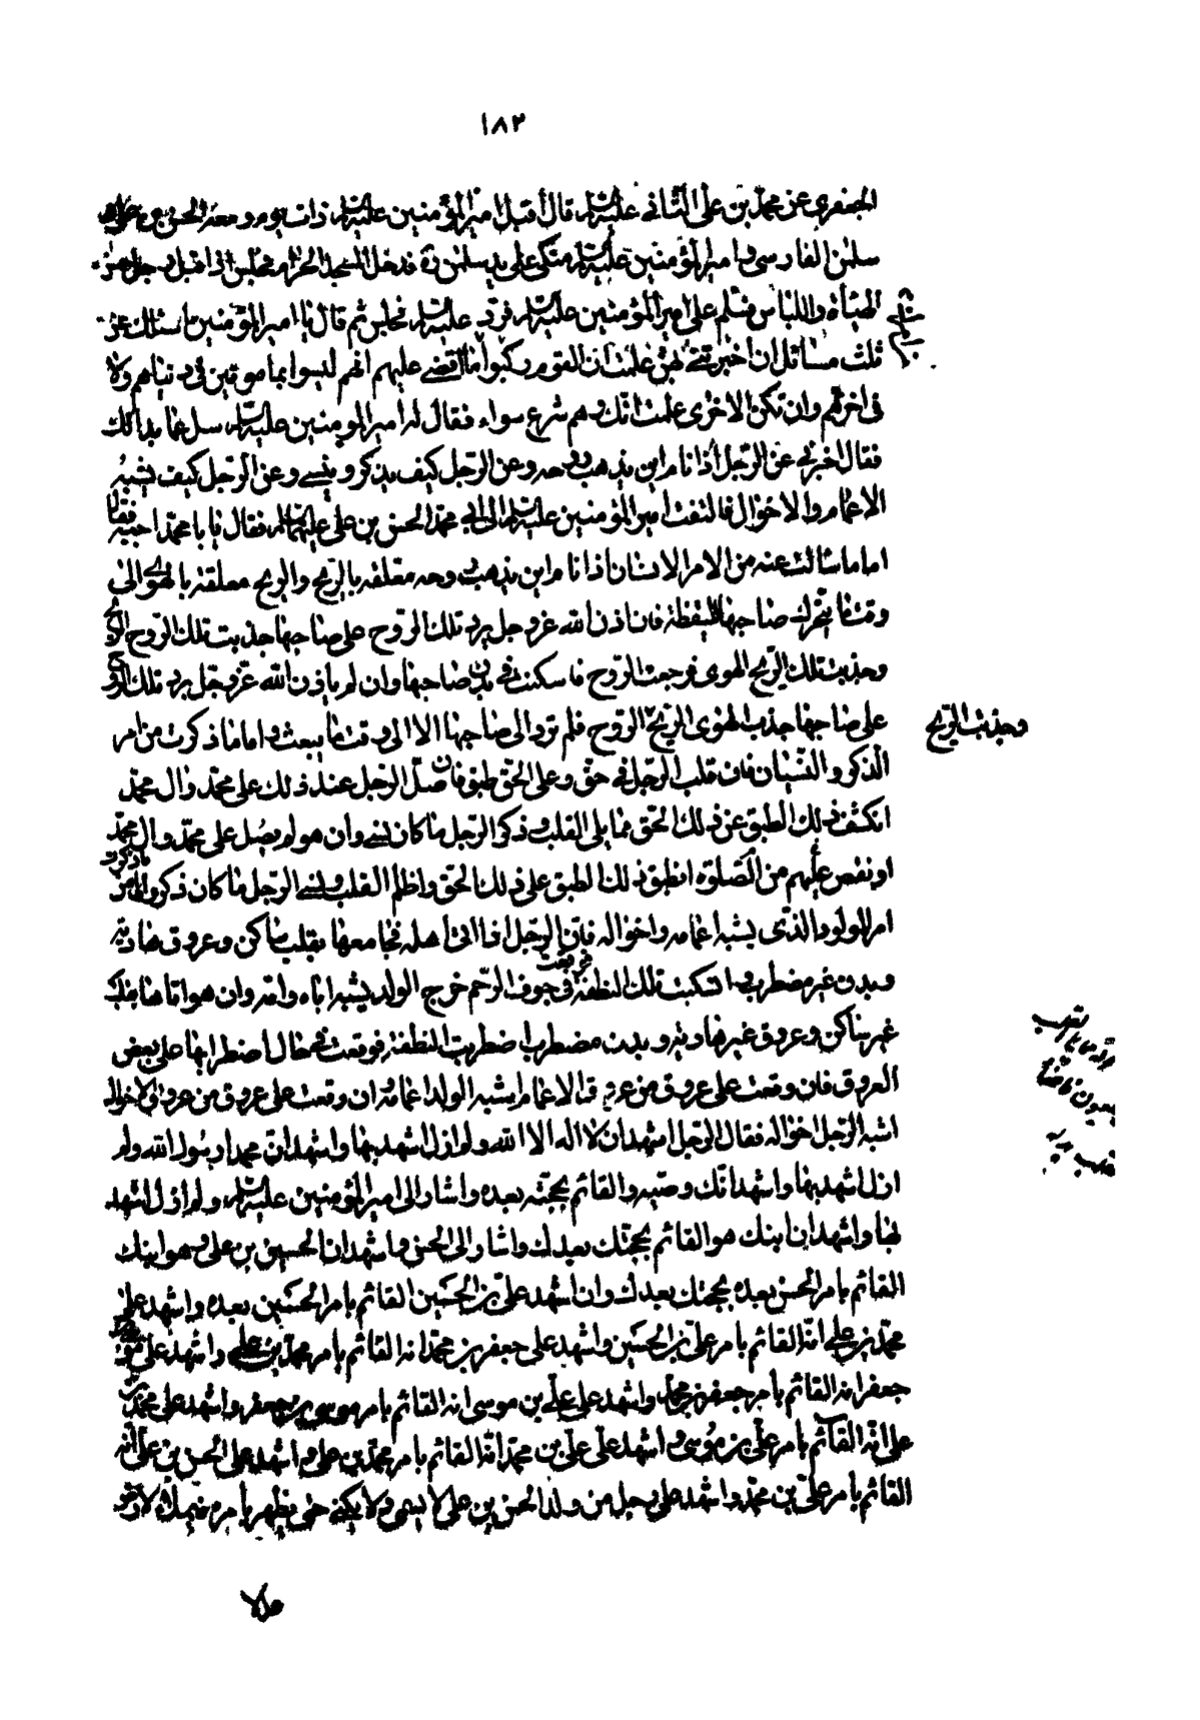 ١٨٢
الجعفري عن محمد بن علي الثاني عليه السلام قال أقبل امير المؤمنين عليه السلام ذات يوم ومعه الحسن بن علي و
سلمن الفارسي و امير المؤمنين عليه السلام متكئ على يد سلمن ره فدخل المسجد الحرام فجلس اذ اقبل رجل حسن
الهيأة واللباس فسلم على امير المؤمنين عليه السلام فرد عليه السلام فجلس ثم قال يا امير المؤمنين اسئلك عن
ثلث مسائل ان اخبرتني بهن علمت ان القوم ركبوا ما اقضي عليهم انهم ليسوا بمامونين في دنياهم ولا
في اخرتهم وان تكن الاخرى علمت انك وهم شرع سواء فقال له امير المومنين عليه السلام سل عما بدا لك
فقال اخبرني عن الرجل اذا نام اين يذهب روحه وعن الرجل كيف يذكر وينسى وعن الرجل كيف يشبه
الاعمام والاخوال فالتفت امير المؤمنين عليه السلام الى ابي محمد الحسن بن علي عليهما السلام فقال يا با محمد اجبه فقال
اما ما سألت عنه من الامر الانسان اذا نام اين يذهب روحه معلقة بالريح والريح معلقة بالهوى الى
وقت ما يتحرك صاحبها لليقظة فان اذن الله عز وجل برد تلك الروح على صاحبها جذبت تلك الروح الريح
وجذبت تلك الريح الهوى فرجعت الروح فاسكنت في بدن صاحبها وان لم ياذن الله عز وجل برد تلك الروح
على صاحبها جذب الهوى الريح الروح فلم ترد الى صاحبها الا الى وقت ما يبعث واما ما ذكرت من امر
وجذبت الريح
الذكر والنسيان فان قلب الرجل في حق وعلى الحق طبق فان صلى الرجل عند ذلك على محمد وال محمد
انكشف ذلك الطبق عن ذلك الحق فمما يلي القلب وذكر الرجل ما كان نسي وان هو لم يصل على محمد وال محمد
او نقص عليهم من الصلوة انطبق ذلك الطبق على ذلك الحق واظلم القلب ونسي الرجل ما كان ذكر واما ما ذكرت من
امر المولود الذي يشبه اعمامه واخواله فان الرجل اذا اتى اهله فجامعها بقلب ساكن وعروق هادية
وبدن غير مضطرب اسكبت تلك النطفة فوقعت في جوف الرحم خرج الولد يشبه اباه وامه وان هو اتاها بقلب
غير ساكن وعروق غير هادية وبدن مضطرب اضطربت النطفة فوقعت في حال اضطرابها على بعض
العروق فان وقعت على عروق من عروق الاعمام اشبه الولد اعمامه وان وقعت على عروق من عروق الاخوال
اشبه الرجل اخواله فقال الرجل اشهد ان لا اله الا الله ولم ازل اشهد بها واشهد ان محمدا رسول الله ولم
ازل اشهد بها واشهد انك وصيه والقائم بحجته بعده واشار الى امير المؤمنين عليه السلام ولم ازل اشهد
بها واشهد ان ابنك هو القائم بحجتك بعدك واشار الى الحسن واشهد ان الحسين بن علي وهو ابنك
القائم بامر الحسن بعده بحجتك بعدك وان اشهد على علي بن الحسين القائم بامر الحسين بعده واشهد على
محمد بن علي انه القائم بامر علي بن الحسين واشهد على جعفر بن محمد انه القائم بامر محمد بن علي واشهد على موسى بن
جعفر انه القائم بامر جعفر بن محمد واشهد على علي بن موسى انه القائم بامر موسى بن جعفر واشهد على محمد بن
علي انه القائم بامر علي بن موسى و اشهد على علي بن محمد انه القائم بامر محمد بن علي واشهد على الحسن بن علي انه
القائم بامر علي بن محمد واشهد على رجل من ولد الحسن بن علي لا يسمى ولا يكنى حتى يظهر امره